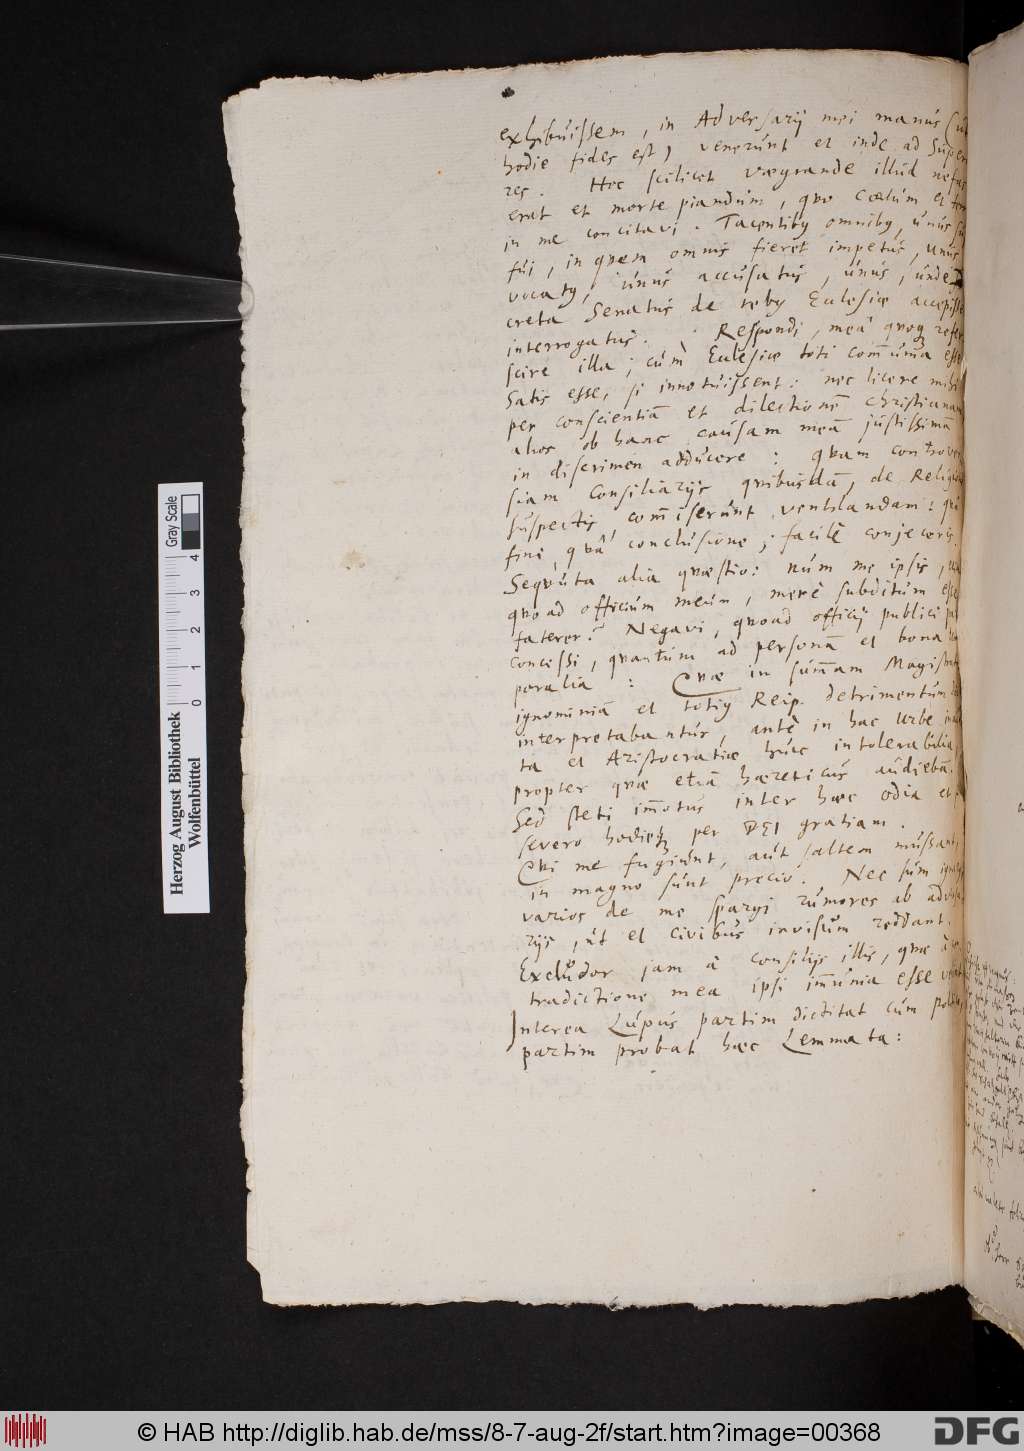 exhibuissem, in Adversarij mei manus (ut
hodie fides est) venerunt et inde ad Super
res. Hoc scilicet vægrande illud nefas
erat et morte piandum, quo Cœlum et terr
in me concitavi. Tacentibꝫ omnibꝫ, unus su
fui, in quem omnis fieret impetus, unus
vocatꝫ, unus accusatus, unus, unde
creta Senatus de rebꝫ Eclesiæ accepisse
interrogatus. Respondi, meâ quoqꝫ refer
scire illa; cùm Eclesiæ toti com̄unia esse
Satis esse, si innotuissent: nec licere mihi
per conscientiā et dilectionē christianam
alios ob hanc causam meā justissimā
in discrimen adducere: Quam controver
siam Consiliarijs quibusdā, de Religio
suspectis com̄iserunt ventilandam: quo
fine, quâ conclusione, facilè conjeceris.
Sequuta alia quæstio: num me ipsis,
quoad officium meum, merè subditum esse
faterer? Negavi, quoad officij publici
concessi, quantum ad personā et bona
poralia: Quæ in sum̄am Magistrat
ignominiā et totiꝫ Reip. detrimentum
interpretabantur, antè in hac Urbe
ta et Aristocratiæ huic intolerabilia,
propter quæ etiā hæreticus audiebā.
Sed steti im̄otus inter hæc odia et
severo hodieqꝫ per DEI gratiam.
Qui me fugiunt, aut saltem mussant,
in magno sunt precio. Nec sum ignarꝫ
varios de me spargi rumores ab adversa
rijs, ut et civibus invisum reddant.
Excludor jam à consilijs illis, quæ à
traditione mea ipsi im̄unia esse
Interea Lupus partim dictitat cum
partim probat hæc Lemmata:
Herzog August Bibliothek
Wolfenbüttel
0 1 2 3 4
Gray Scale
© HAB http://diglib.hab.de/mss/8-7-aug-2f/start.htm?image=00368
DFG